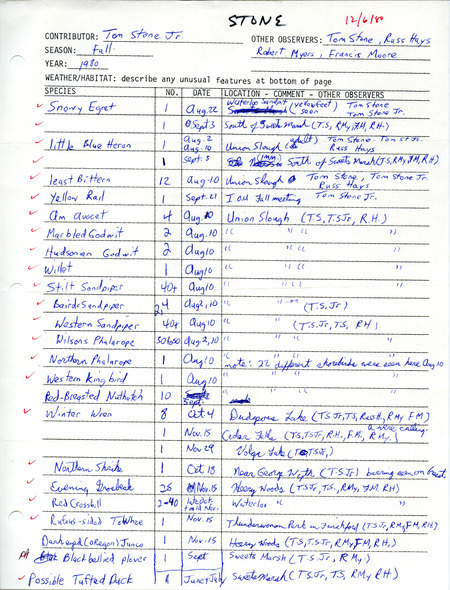 STONE
12/6/80
CONTRIBUTOR: Tom Stone Jr. OTHER OBSERVERS: Tom Stone, Russ Hays
SEASON: Fall Robert Myers, Francis Moore
YEAR: 1980
WEATHER/HABITAT: describe any unusual features at bottom of page
SPECIES NO. DATE LOCATION - COMMENT - OTHER OBSERVERS
Snowy Egret 1 Aug. 22 Waterloo (yellow feet) seen Tom Stone Tom Stone Jr.
1 Sept 3 South of Sweets Marsh (T.S, R.M, F.M, R.H.)
little Blue Heron 1 Aug. 2 Aug. 10 Union Slough (adult) Tom Stone - Tom St. Jr. Russ Hays
1 Sept. 3 (imm) South of Sweets Marsh (T.S, R.M, F.M, R.H)
least Bittern 12 Aug. 10 Union Slough Tom Stone, Tom Stone Jr. Russ Hays
Yellow Rail 1 Sept. 21 I.O.U. Fall meeting Tom Stone Jr.
Am Avocet 4 Aug. 10 Union Slough (T.S, T.S Jr, R.H.)
Marbled Godwit 2 Aug. 10 " " " "
Hudsonian Godwit 2 Aug 10 " " " "
Willet 1 Aug 10 " " "
Stilt Sandpiper 40+ Aug 10 " " " "
Baird's Sandpiper 2,4 Aug 2, 10 " " " (T.S. Jr)
Western Sandpiper 40+ Aug 10 " " (T.S. Jr, T.S, R H)
Wilsons Phalarope 50 650 Aug. 2, 10 " " " "
Northern Phalarope 1 Aug 10 note: 22 different shorebirds were seen here Aug 10
Western Kingbird 1 Aug 10 " " " "
Red-Breasted Nuthatch 10 Sept.
Winter Wren 8 Oct 4 Dudgeons Lake (T.S Jr, T.S, Russ H., R.M, F.M)
1 Nov. 15 Cedar Falls (T.S, T.S Jr, R.H., F.M., R.M.) a wire calling.
1 Nov 29 Volga Lake (T.S Jr.)
Northern Shrike 1 Oct 18 Near George Wyth (T.S. Jr) barring seen on breast.
Evening Grosbeak 25 Nov. 15 Heery Woods (T.S, T.S Jr, R.M, F.M, R H)
Red Crossbill 2-40 till Nov. Waterloo "
Rufus-sided Towhee 1 Nov. 15 Thunderwoman Park in Janesville (T.S Jr, R.M, F M, R H.)
Darkeyed (oregon) Junco 1 Nov. 15 Heery Woods (T.S, T.S Jr, R.M, F.M, R.H.)
Blackbellied plover 1 Sept Sweets Marsh (T.S. Jr, R.M.)
Possible Tufted Duck 1 June + July Sweets Marsh (T.S. Jr, T.S, R M, R H)